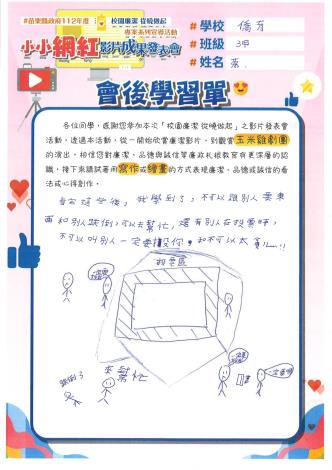 #苗栗縣政府112年度
校園廉潔 從曉做起
專案系列宣導活動
小小網紅影片成果發表會
#學校 僑育
#班級 3甲
#姓名
會後學習單
各位同學，感謝您參加本次「校園廉潔 從曉做起」之影片發表會
活動，透過本活動，從一開始欣賞廉潔影片，到觀賞玉米雞劇團
的演出，相信您對廉潔、品德與誠信等廉政札根教育有更深層的認
識，接下來請試著用寫作或繪畫的方式表現廉潔、品德或誠信的看
法或心得創作。
我學到了，不可以跟別人要東
西和別人跌倒，可以去幫忙，還有別人在投票時，
不可以叫別人一定要投你，和不可以太貪心!!
投票區
跌倒了
來幫忙